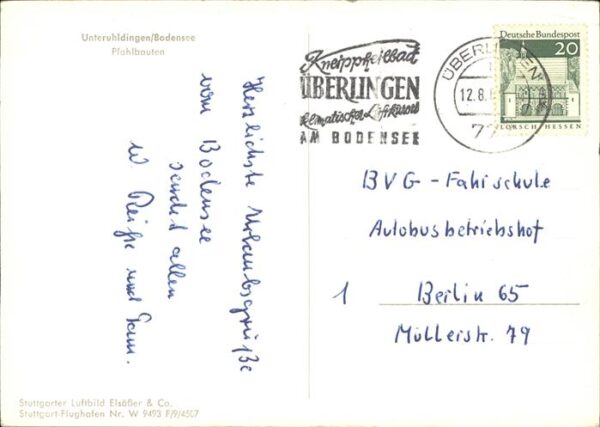 Unteruhldingen/Bodensee
Pfahlbauten
Herzlichste Urlaubsgrüße
vom Bodensee
sendet allen
W. Reiße und Fam.
Stuttgarter Luftbild Elsäßer & Co.
Stuttgart-Flughafen Nr. W 9493 F/9/4507
Kneippheilbad
ÜBERLINGEN
klimatischer Luftkurort
AM BODENSEE
ÜBERLINGEN
12.8.
77
Deutsche Bundespost
20
LORSCH/HESSEN
BVG-Fahrschule
Autobusbetriebshof
1 Berlin 65
Müllerstr. 79